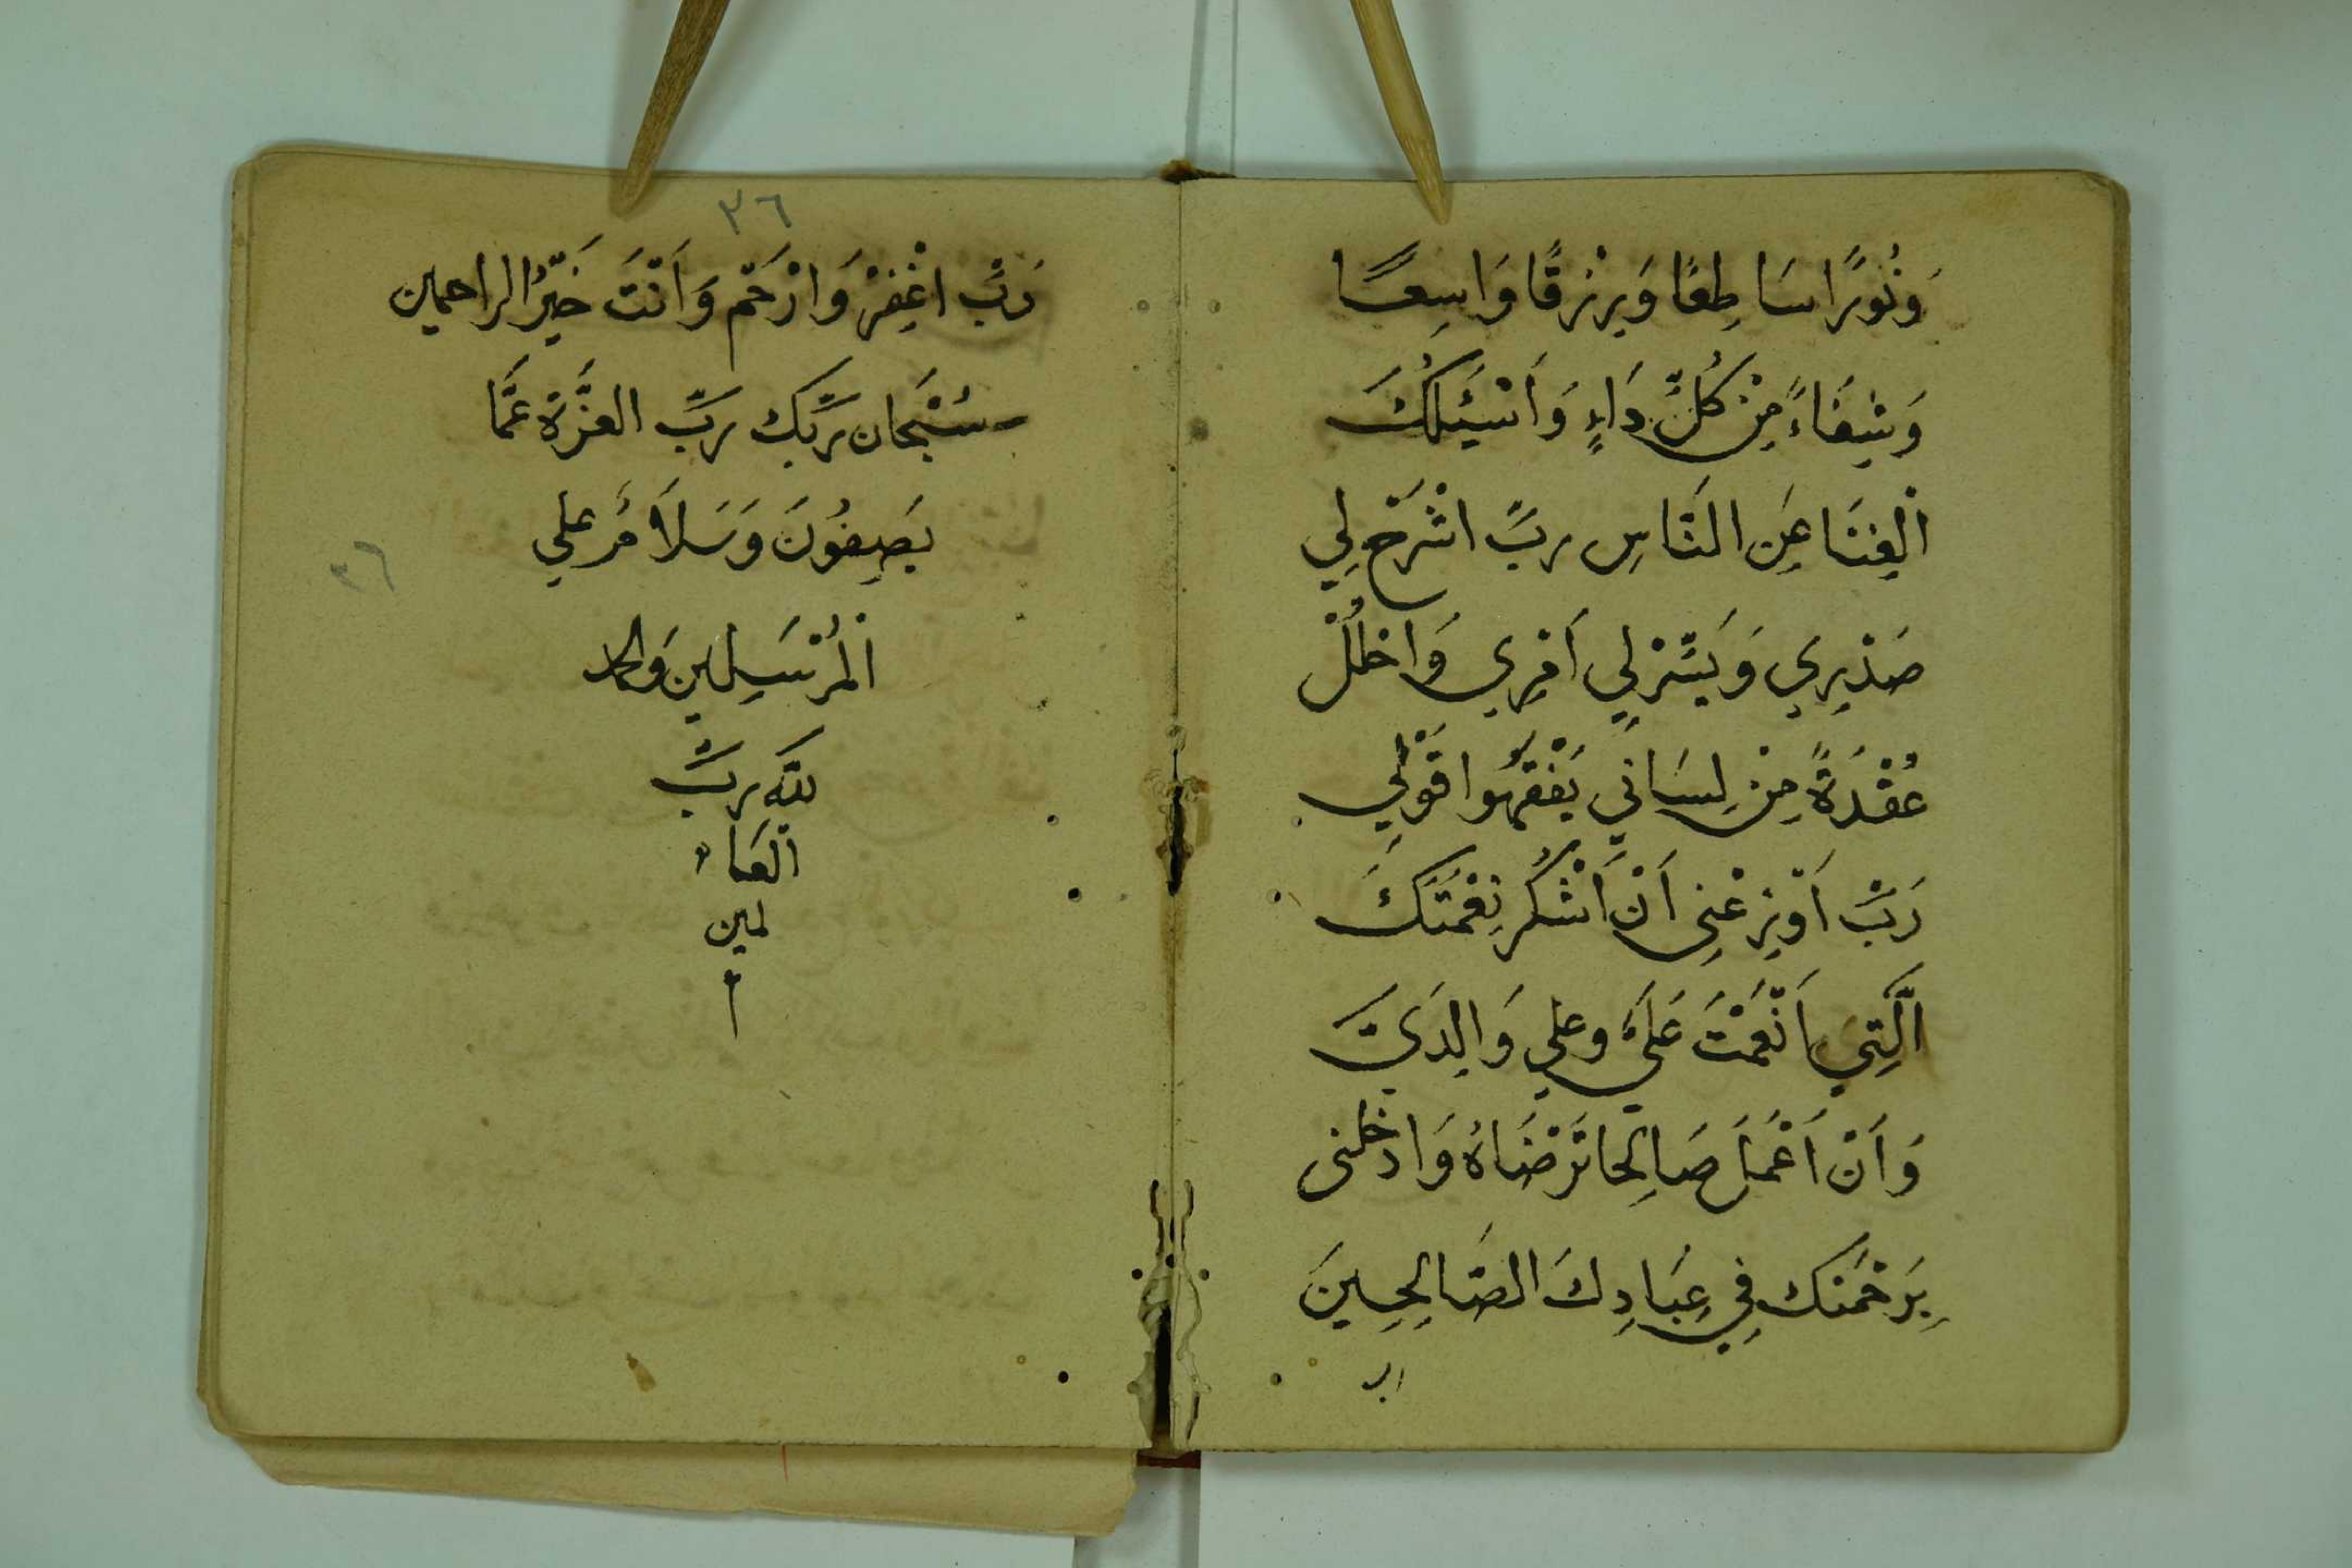 وَنُورًا سَاطِعًا وَرِزْقًا وَاسِعًا
وَشِفَاءً مِنْ كُلِّ دَاءٍ وَأَسْئَلُكَ
الْغِنَا عَنِ النَّاسِ رَبِّ اشْرَحْ لِي
صَدْرِي وَيَسِّرْ لِي أَمْرِي وَاحْلُلْ
عُقْدَةً مِنْ لِسَانِي يَفْقَهُوا قَوْلِي
رَبِّ أَوْزِعْنِي أَنْ أَشْكُرَ نِعْمَتَكَ
الَّتِي أَنْعَمْتَ عَلَيَّ وعلي وَالِدَيَّ
وَأَنْ أَعْمَلَ صَالِحًا تَرْضَاهُ وَادْخلنى
بِرَحْمَتِكَ فِي عِبَادِكَ الصَّالِحِينَ
٣٦
رَبِّ اغْفِرْ وَارْحَمْ وَأَنْتَ خَيْرُ الراحمين
سُبْحَان رَبِّكَ رَبِّ العِزَّةِ عَمَّا
يَصِفُونَ وَسَلَامٌ علي
الْمُرْسَلِين وَالحمد
لله رَبِّ
الْعَا
لمين
م
٣٦